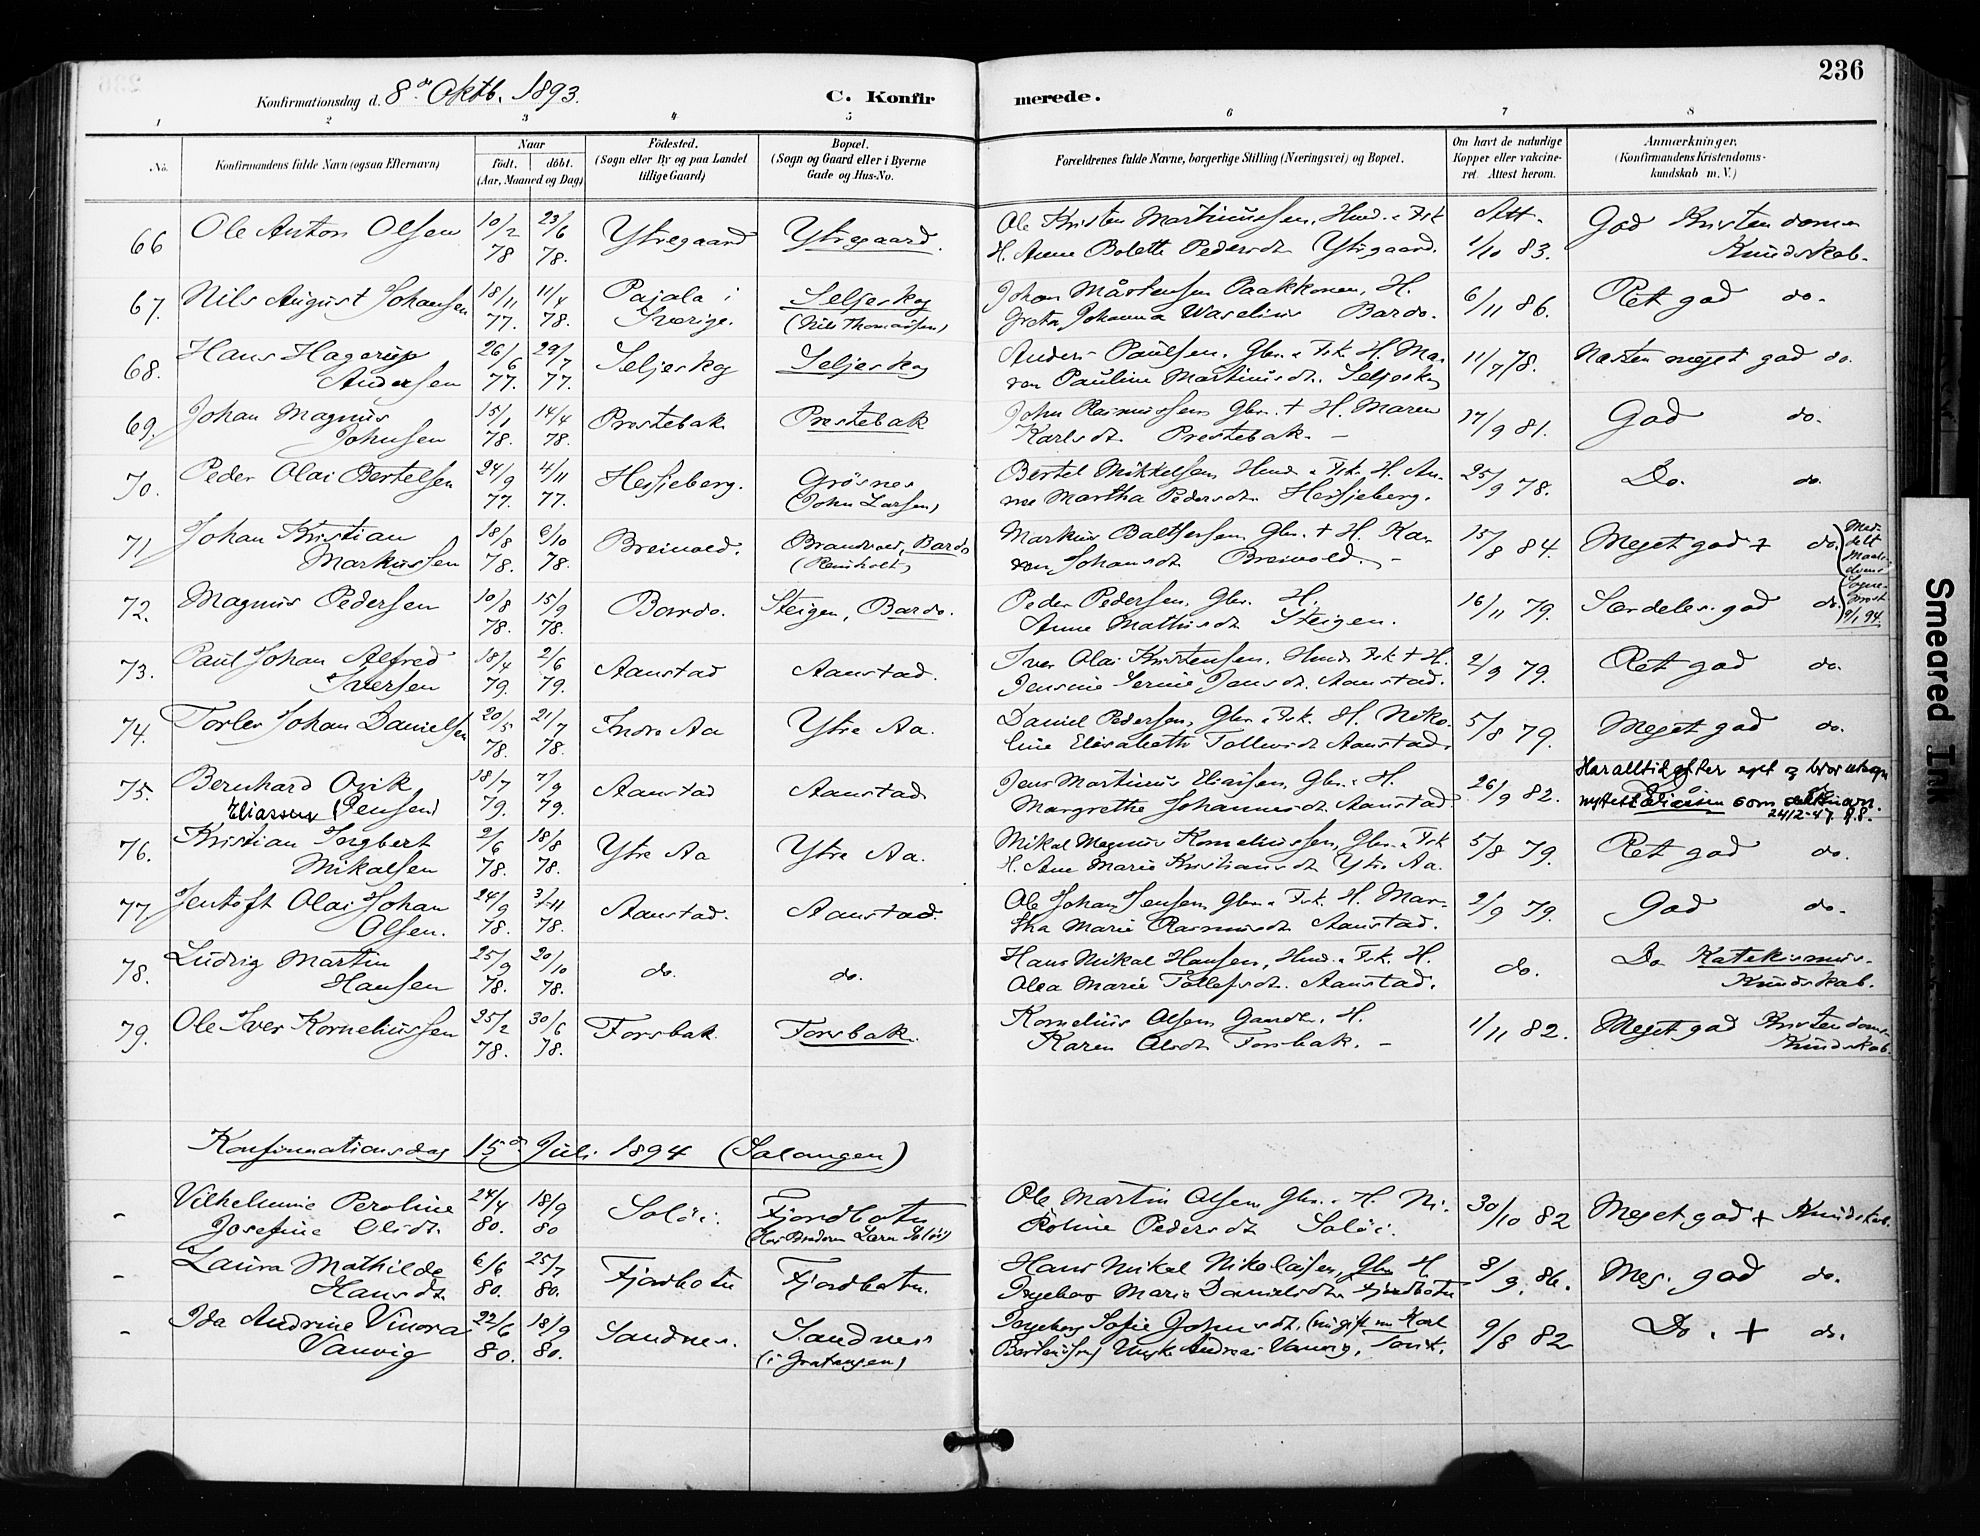 236
Konfirmationsdag d. 8de Oktb. 1893.
C. Konfirmerede.
1 2 3 4 5 6 7 8
No. Konfirmandens fulde Navn (ogsaa Efternavn) Naar født. døbt. (Aar, Maaned og Dag) Fødested. (Sogn eller By og paa Landet tillige Gaard) Bopæl. (Sogn og Gaard eller i Byerne Gade og Hus-No. Forældrenes fulde Navne, borgerlige Stilling (Næringsvei) og Bopæl. Om havt de naturlige Kopper eller vaccineret. Attest herom. Anmærkninger. (Konfirmandens Kristendomskundskab m. V.)
66 Ole Anton Olsen 10/2 78 23/6 78. Ytregaard Ytregaard. Ole Kristen Martinussen, Hmd. & Fsk
H. Anne Bolette Pedersdt. Ytregaard. Att. 1/10 83. God Kristendoms Kundskab.
67. Nils August Johansen 18/11 77. 11/4 78. Pajala i Sverige. Seljeskog (Nils Thomassen) Johan Mårtensen Paakkonen, H.
Greta Johanna Waselius Bardo. 6/11 86. Ret god do.
68. Hans Hagerup Andersen 26/6 77. 29/7 77. Seljeskog Seljeskog Anders Paulsen, Gbr. & Fsk. H. Ma-
ren Pauline Martinusdt. Seljeskog 11/7 78. Næsten meget god do.
69. Johan Magnus Johnsen 15/1 78. 14/4 78. Prestebak Prestebak John Rasmussen Gbr. + H. Maren
Karlsdt. Prestebak. 17/9 81. God do.
70. Peder Olai Bertelsen 24/9 77. 4/11 77. Hesjeberg. Grøsnes (John Larsen) Bertel Mikkelsen Hmd. & Fsk. H. An-
ne Martha Pedersdt. Hesjeberg. 25/9 78. Do. do.
71 Johan Kristian Markussen 18/8 78. 6/10 78. Breivold. Brandvold, Bardo Markus Balthersen Gbr. + H. Ka-
ren Johansdt Breivold. 15/8 84. Meget god + do.
72. Magnus Pedersen 10/8 78. 15/9 78. Bardo. Steigen, Bardo. Peder Pedersen, Gbr. H.
Anne Mathisdt Steigen. 16/11 79. Særdeles god do.
73. Paul Johan Alfred Iversen 18/4 79. 2/6 79. Aanstad Aanstad. Iver Olai Kristensen, Hmd. Fsk + H.
Jensine Serine Jensdt. Aanstad. 2/9 79. Ret god do.
74. Torlev Johan Danielsen 20/5 78. 21/7 78. Indre Aa Ytre Aa. Daniel Pedersen, Gbr. & Fsk. H. Niko-
line Elisabeth Tollevsdt Aanstad. 5/8 79. Meget god do.
75. Bernhard Ovik Eliassen (Jensen) 18/7 79. 7/9 79. Aanstad Aanstad. Jens Martinus Eliasen, Gbr. & H.
Margrethe Johannesdt. Aanstad 26/9 82. Har alltid efter eget
nyttet Eliassen som
24/2-47.
76. Kristian Ingbert Mikalsen 2/6 78. 18/8 78. Ytre Aa Ytre Aa. Mikal Magnus Korneliussen, Gbr. & Fsk
H. Ane Marie Kristiansdt Ytre Aa. 5/8 79. Ret god do.
77. Jentoft Olai Johan Olsen. 24/9 78. 3/11 78. Aanstad. Aanstad. Ole Johan Jensen Gbr. & Fsk. H. Mar-
tha Marie Rasmusdt. Aanstad. 2/9 79. God do.
78. Ludvig Martin Hansen 25/9 78. 20/10 78. do. do. Hans Mikal Hansen, Hmd. & Fsk. H.
Olea Marie Tollefsdt. Aanstad. do. Do Katekismus-Kundskab.
79. Ole Iver Korneliussen 25/2 78. 30/6 78. Forsbak. Forsbak. Kornelius Olsen Gaardb. H.
Karen Olsdt Forsbak. 1/11 82. Meget god Kristendoms Kundskab.
Konfirmationsdag 15de Juli 1894 (Salangen)
- Vilhelmine Peroline Josefine Olsdt. 24/4 80. 18/9 80 Soløi. Fjordbotn Ole Martin Olsen Gbr. & H. Ni-
koline Pedersdt Soløi. 30/10 82 Meget god + Kundskab.
- Laura Mathilde Hansdt. 6/6 80. 25/7 80. Fjordbotn Fjordbotn. Hans Mikal Nikolaisen, Gbr. H.
Ingeborg Marie Danielsdt. Fjordbotn 8/9. 86. Meg. god do.
- Ida Andrine Vinora Vanvig 22/6 80. 18/9 80. Sandnes. Sandnes (i Gratangen) Ingeborg Sofie Johnsdt. (nu gift m. Karl
Berteussen) Ungk. Andreas Vanvig, 9/8 82 Do. + do.
Smeared Ink